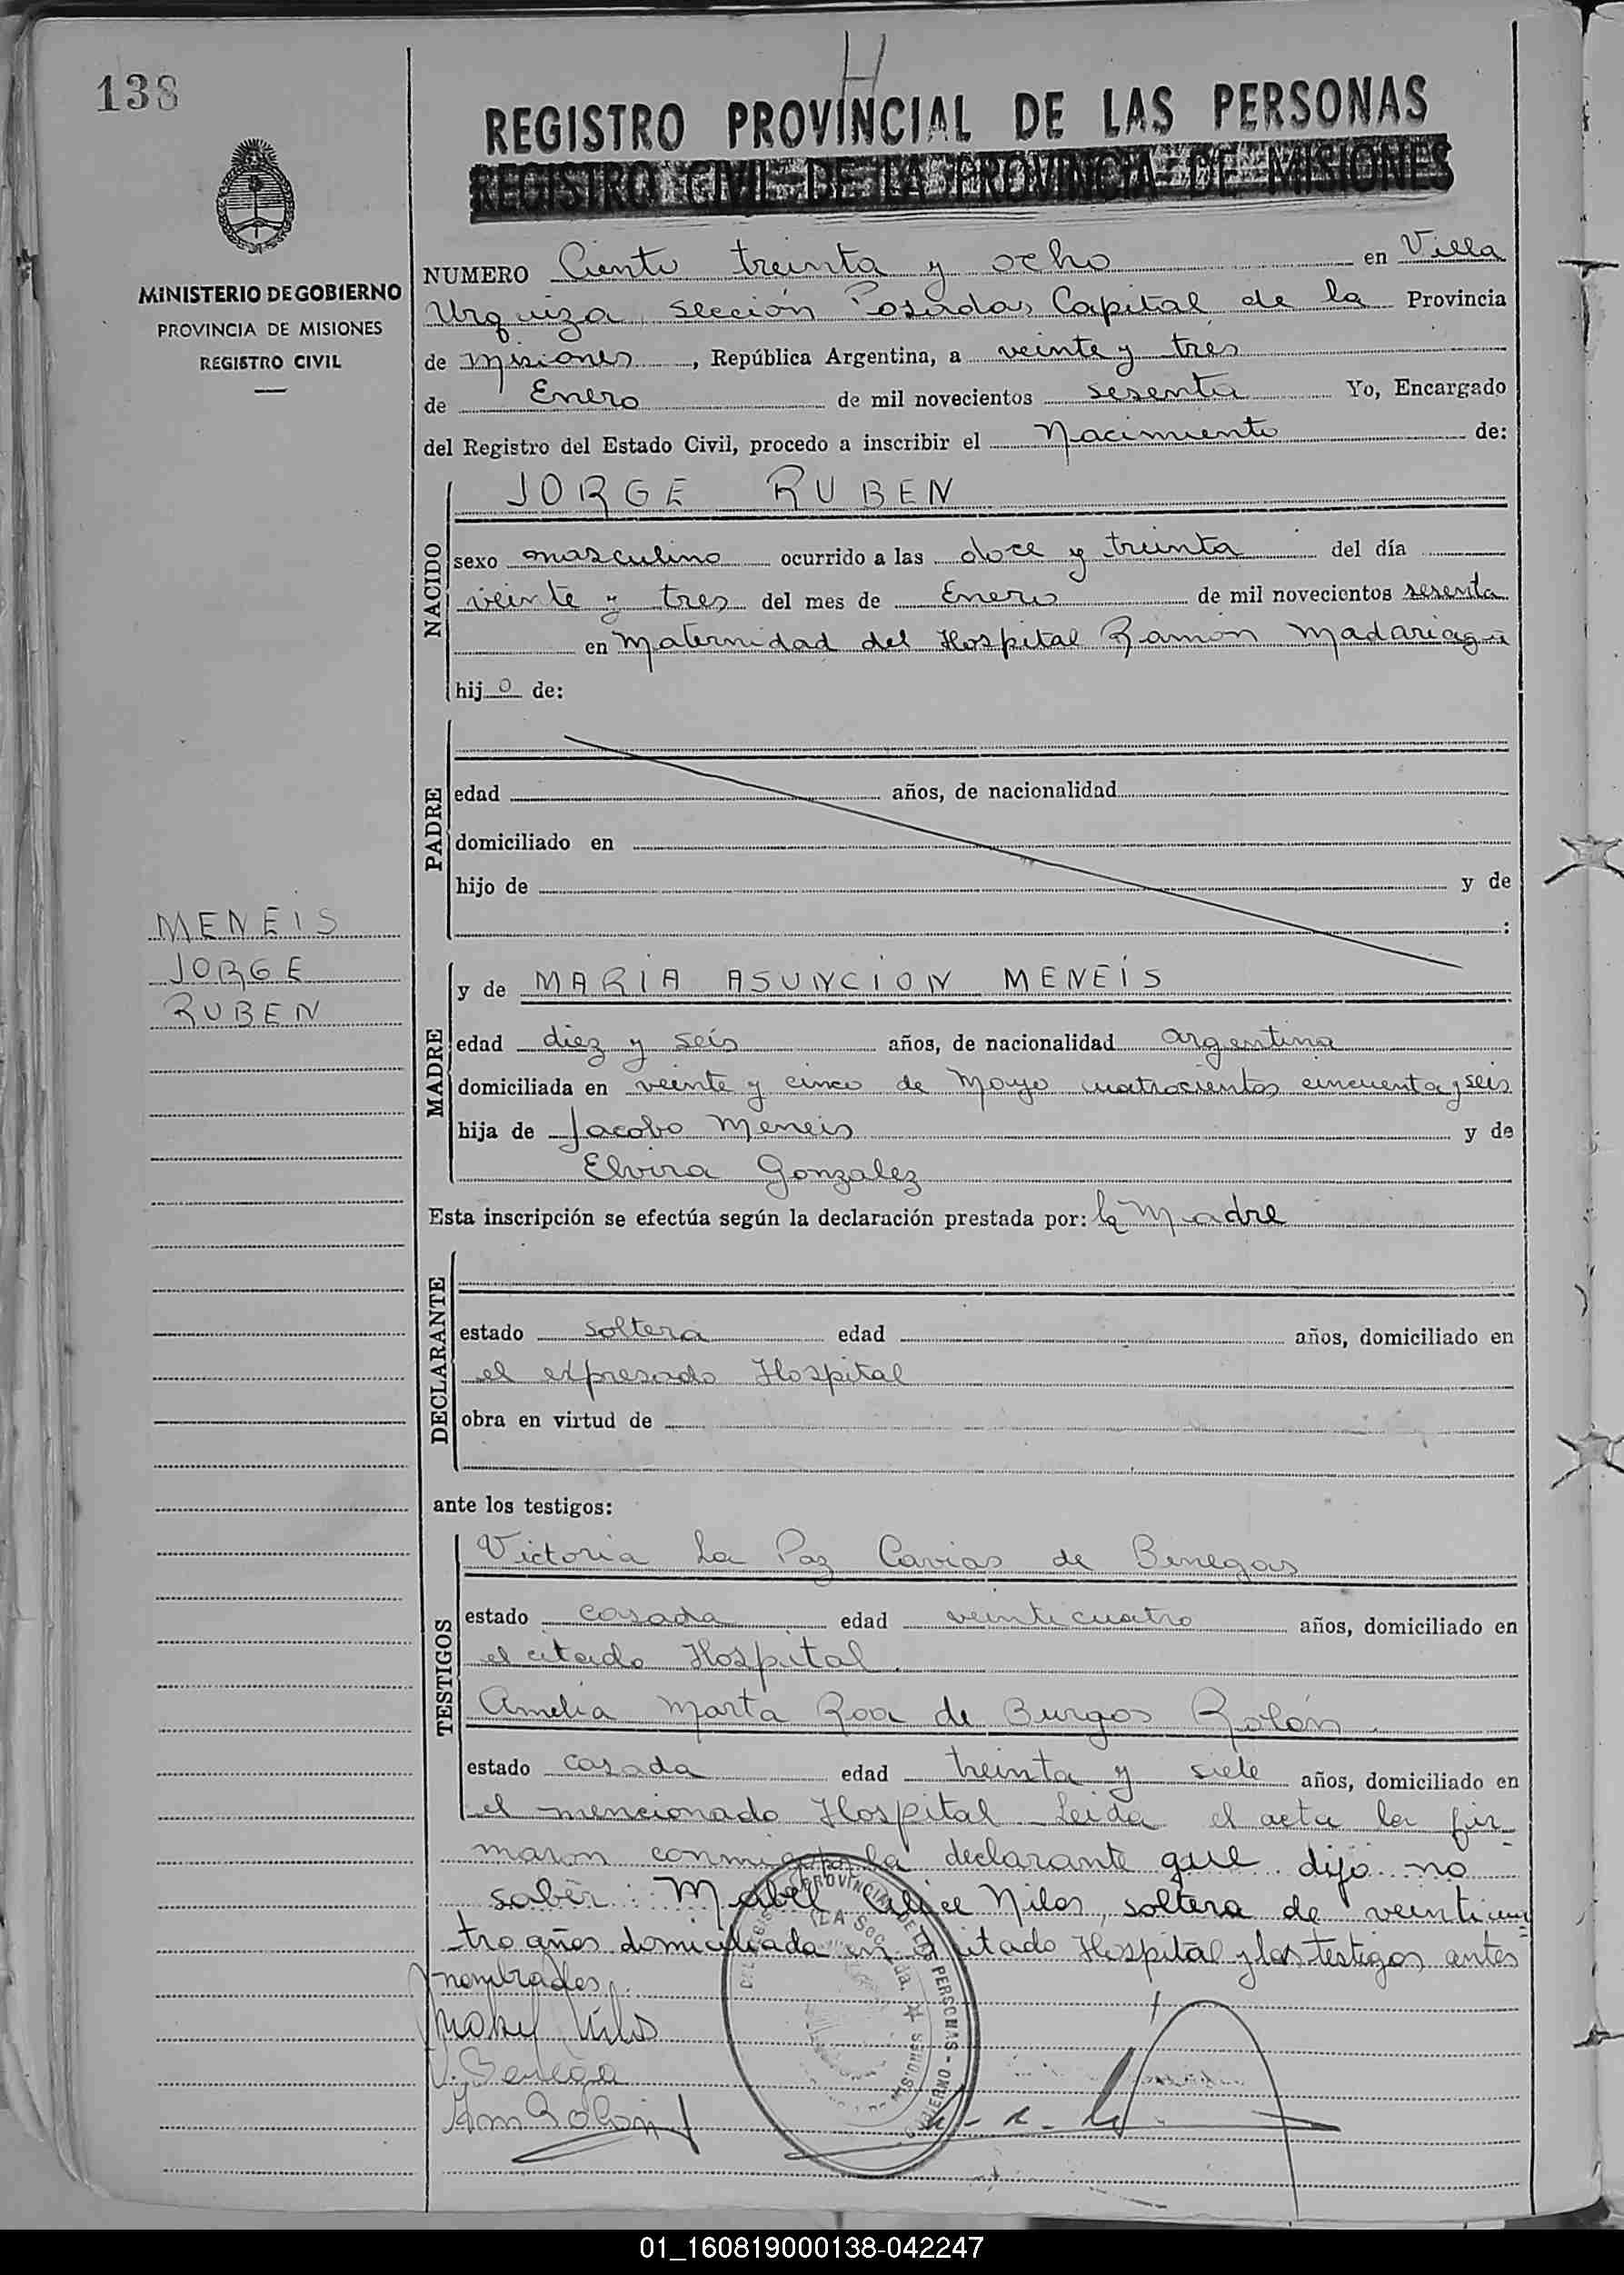 138
H
REGISTRO PROVINCIAL DE LAS PERSONAS
REGISTRO CIVIL DE LA PROVINCIA DE MISIONES
MINISTERIO DE GOBIERNO
PROVINCIA DE MISIONES
REGISTRO CIVIL
NUMERO Ciento treinta y ocho en Villa
Urquiza sección Posadas Capital de la Provincia
de Misiones, República Argentina, a veinte y tres
de Enero de mil novecientos sesenta Yo, Encargado
del Registro del Estado Civil, procedo a inscribir el Nacimiento de:
NACIDO
JORGE RUBEN
sexo masculino ocurrido a las doce y treinta del día
veinte y tres del mes de Enero de mil novecientos sesenta
en Maternidad del Hospital Ramón Madariaga
hijo de:
PADRE
edad años, de nacionalidad
domiciliado en
hijo de y de
:
MENEIS
JORGE
RUBEN
MADRE
y de MARIA ASUNCION MENEIS
edad diez y seis años, de nacionalidad argentina
domiciliada en veinte y cinco de Mayo cuatrocientos cincuenta y seis
hija de Jacobo Meneis y de
Elvira Gonzalez
Esta inscripción se efectúa según la declaración prestada por: la Madre
DECLARANTE
estado soltera edad años, domiciliado en
el expresado Hospital
obra en virtud de
ante los testigos:
TESTIGOS
Victoria La Paz de Benegas
estado casada edad veinticuatro años, domiciliado en
el citado Hospital.
Amelia Marta Roa de Burgos Rolón.
estado casada edad treinta y siete años, domiciliado en
el mencionado Hospital Leida el acta la fir-
maron conmigo por la declarante que dijo no
saber: Mabel Nilos, soltera de veinticua
tro años domiciliada en el citado Hospital y los testigos antes
nombrados.
V. Benega
Am Rolon
PROVINCIAL DE LAS PERSONAS - GOBIERNO
MISIONES
01_160819000138-042247